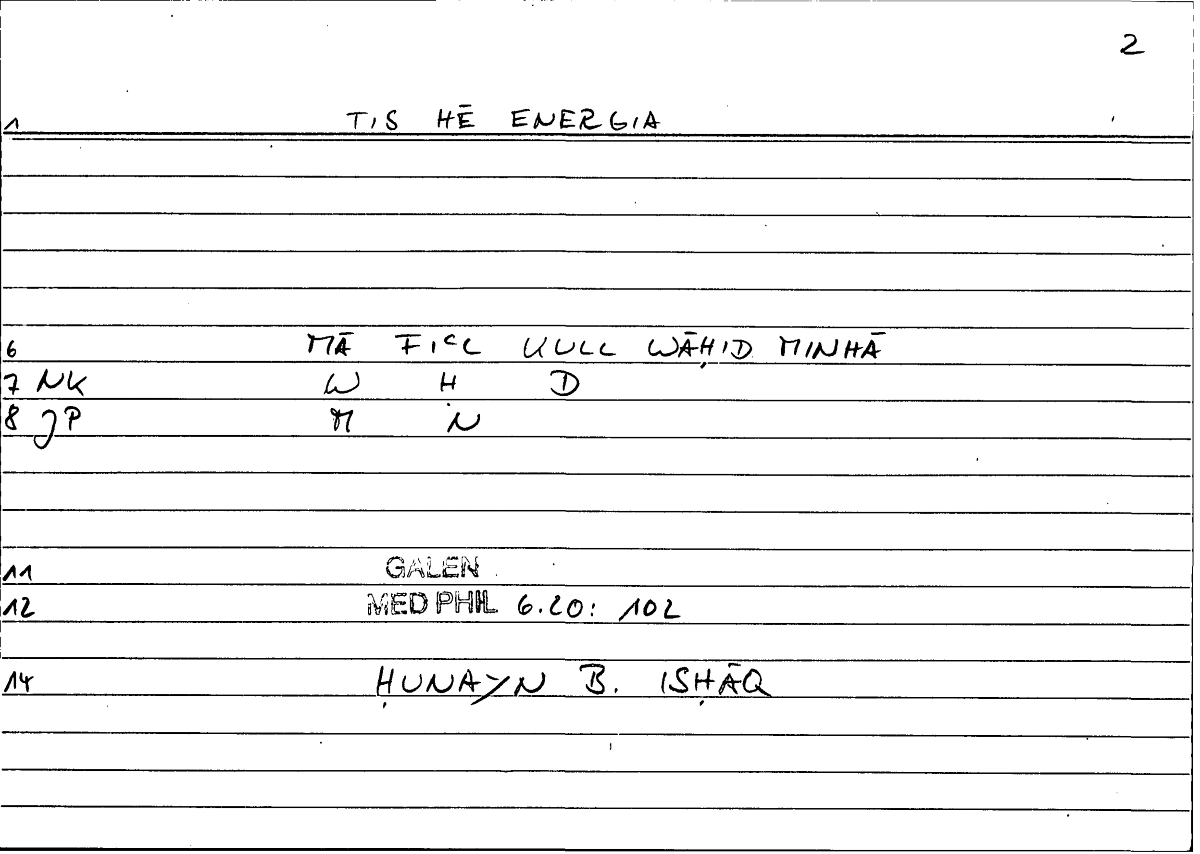 2
1 TIS HĒ ENERGIA
6 MĀ FIʿL KULL WĀḤID MINHĀ
7 NK W Ḥ D
8 JP M N
11 GALEN
12 MED PHIL 6.20: 102
14 ḤUNAYN B. ISḤĀQ